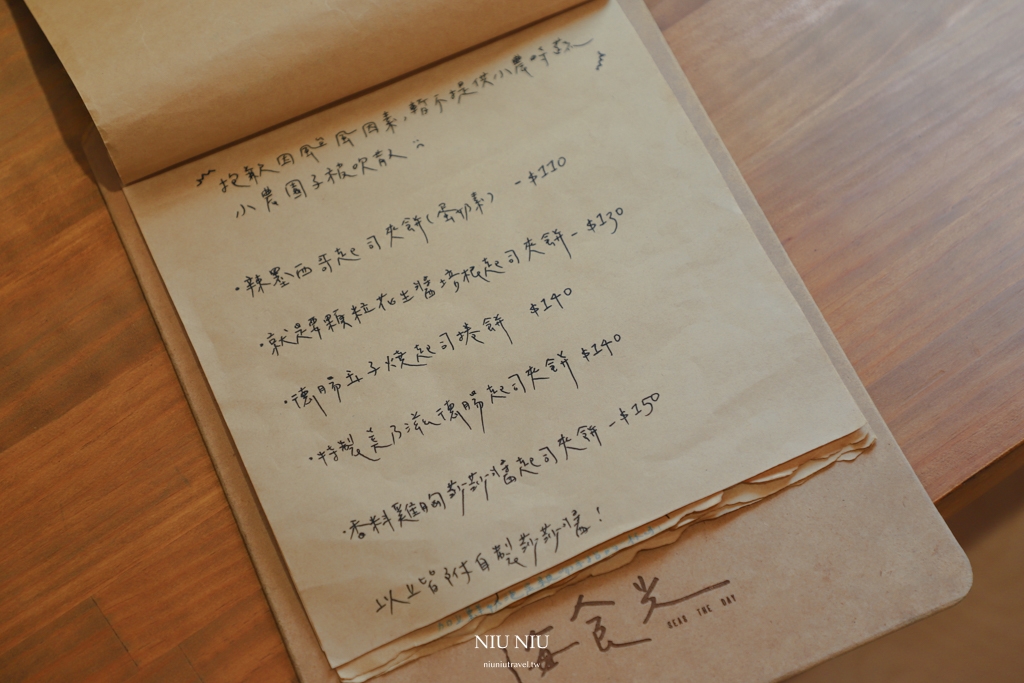 抱歉因風土風因素,暫不提供小農時蔬
小農園子被吹散
·辣墨西哥起司夾餅(蛋奶素) -$110
·就是要顆粒花生醬培根起司夾餅-$130
·德腸玉子燒起司捲餅 $140
·特製美乃滋德腸起司夾餅 $140
·香料雞胸莎莎醬起司夾餅-$150
以上皆附自製莎莎醬!
食光
BEAR THE DAY
NIU NIU
niuniutravel.tw